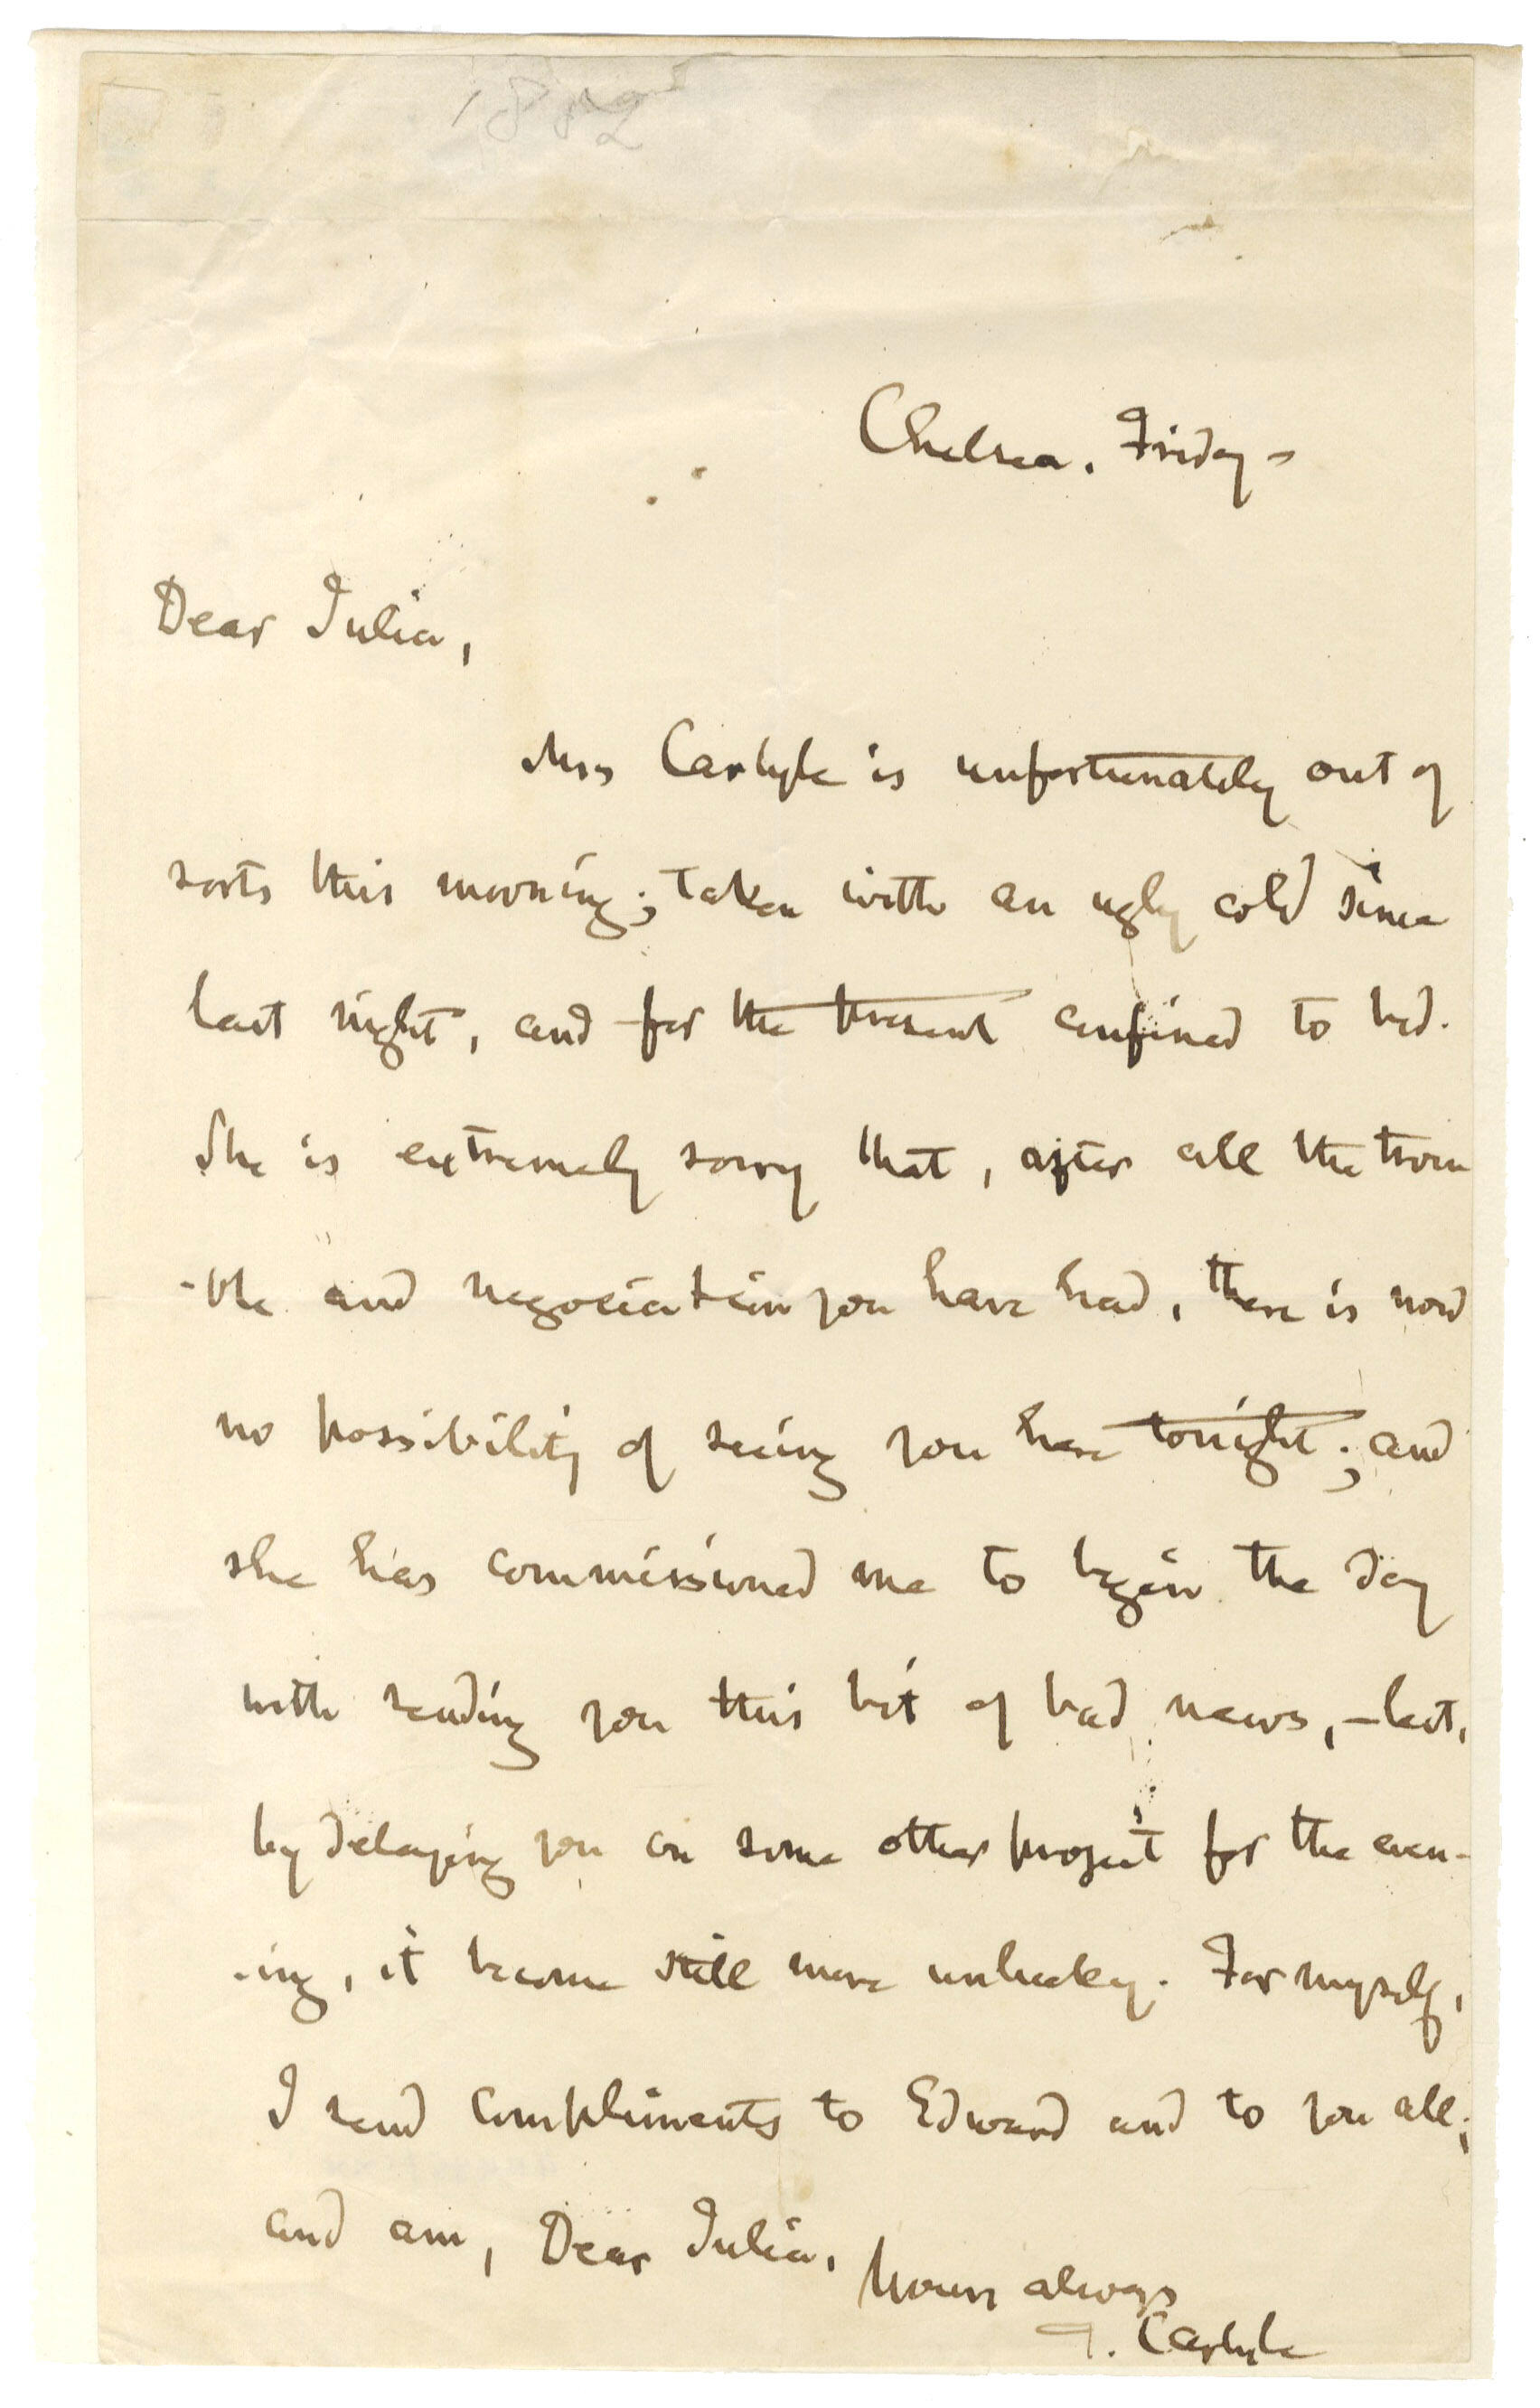 Chelsea. Friday –
Dear Julia,
Mrs Carlyle is unfortunately out of
sorts this morning; taken with an ugly cold since
last night, and for the present confined to bed.
She is extremely sorry that, after all the trou
-ble and negociation you have had, there is now
no possibility of seeing you here tonight; and
she has commissioned me to begin the day
with sending you this bit of bad news, – lest,
by delaying you on some other project for the even-
-ing, it become still more unlucky. For myself,
I send compliments to Edward and to you all;
and am, Dear Julia,
Yours always
T. Carlyle